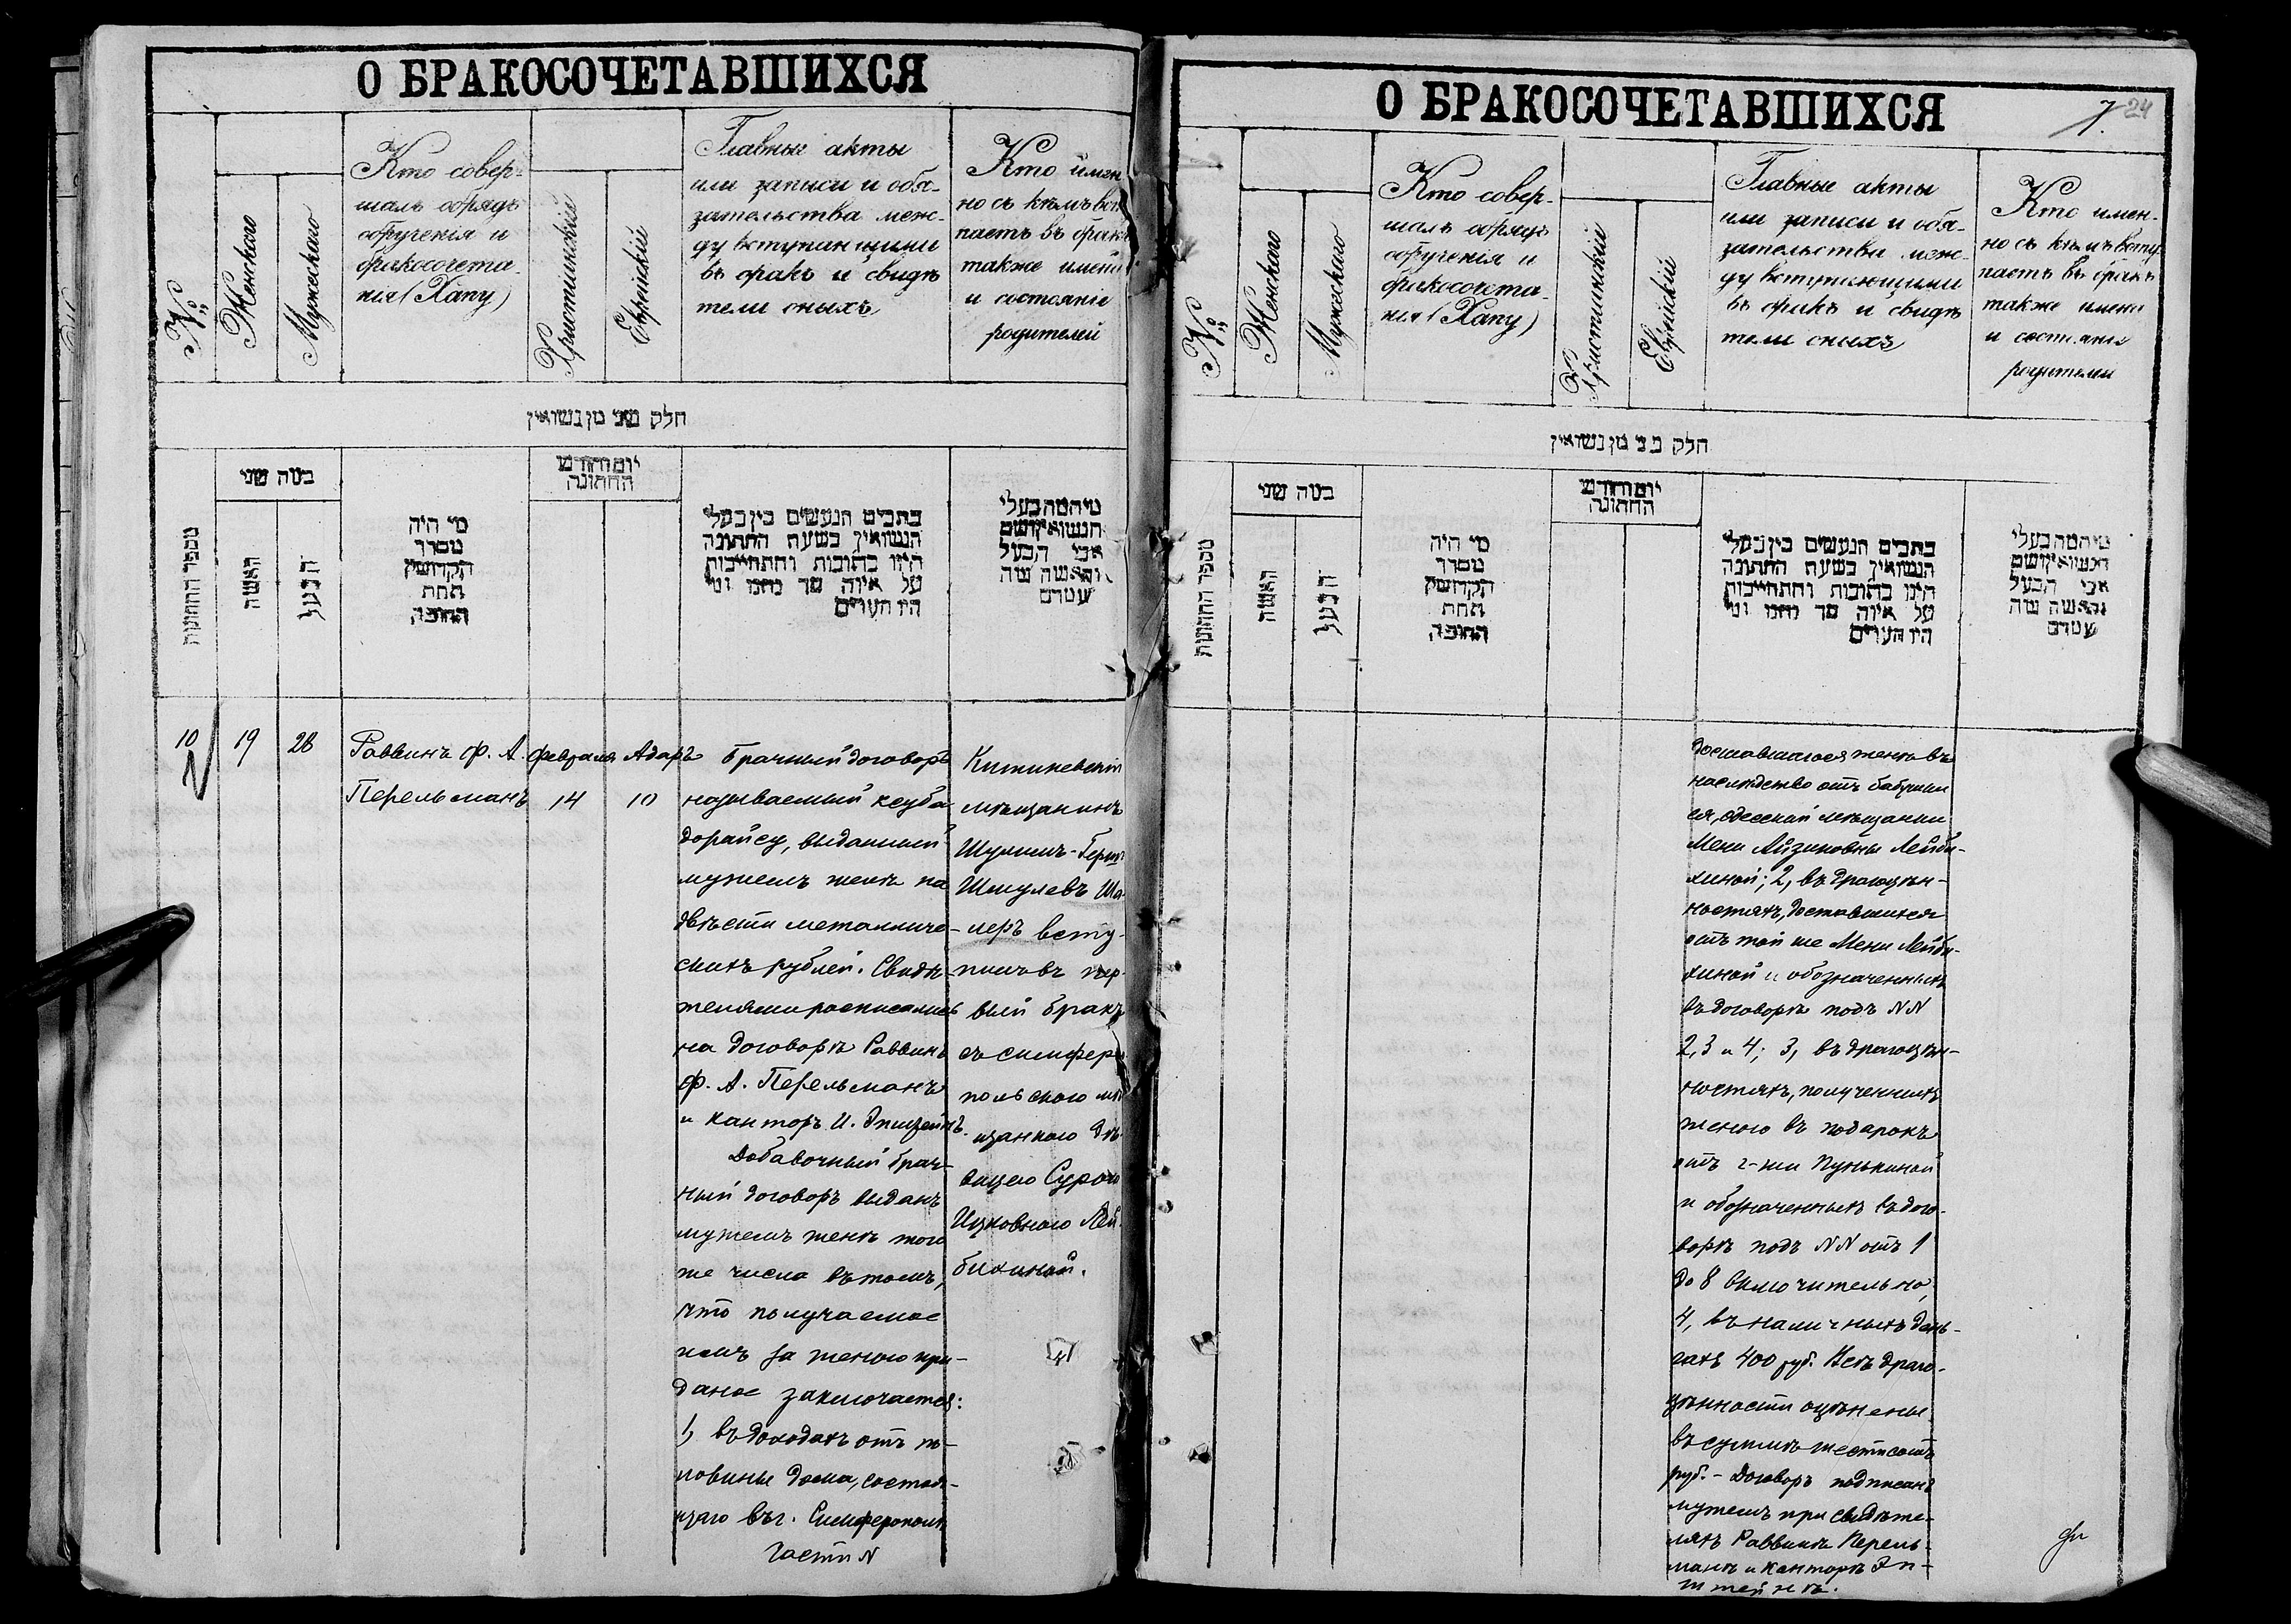 О БРАКОСОЧЕТАВШИХСЯ
№
Женскаго
Мужескаго
Кто совер-
шалъ обрядъ
обрученія и
бракосочета-
нія (Хапу)
Христіянскій
Еврейскій
Главные акты
или записи и обя-
зательства меж-
ду вступающими
въ бракъ и свидѣ
тели оныхъ
Кто имен
но съ кѣмъ всту
паетъ въ бракъ
также имена
и состояніе
родителей
חלק שני מן נשואין
מספר החתונות
כמה שני
האשה
הבעל
מי היה
מסדר
הקדושין
תחת
החופה
יום וחודש
החתונה
כתבים הנעשים בין בעלי
הנשואין בשעת החתונה
היינו כתובות והתחייבות
על איזה סך נתנו ומי
היו העדים
מי המה בעלי
הנשואין ושם
אבי הבעל
והאשה ומה
מעמדם
10
19
28
Раввинъ Ф. А.
Перельманъ
февраля
14
Адаръ
10
Брачный договоръ
называемый ксуба
дорайсу, выданный
мужемъ женѣ на
двѣсти металличе-
скихъ рублей. Свидѣ-
телями росписались
на договорѣ Раввинъ
Ф. А. Перельманъ
и канторъ И. Эпштейнъ.
Добавочный брач-
ный договоръ выданъ
мужемъ женѣ того
же числа въ томъ,
что получаемое
имъ за женою при-
даное заключается:
1, въ доходахъ отъ по-
ловины дома, состоя-
щаго въ г. Симферополѣ
части N
Кишиневскій
мѣщанинъ
Шулимъ-Герш
Шмулевъ
вступ-
илъ въ пер-
вый бракъ
съ симферо
польскою мѣ
щанкою дѣ-
вицею Сурою
Ицковною Лей-
бихиной.
О БРАКОСОЧЕТАВШИХСЯ
7.
24
№
Женскаго
Мужескаго
Кто совер-
шалъ обрядъ
обрученія и
бракосочета-
нія (Хапу)
Христіянскій
Еврейскій
Главные акты
или записи и обя-
зательства меж-
ду вступающими
въ бракъ и свидѣ
тели оныхъ
Кто имен-
но съ кѣмъ всту
паетъ въ бракъ
также имена
и состояніе
родителей
חלק שני מן נשואין
מספר החתונות
כמה שני
האשה
הבעל
מי היה
מסדר
הקדושין
תחת
החופה
יום וחודש
החתונה
כתבים הנעשים בין בעלי
הנשואין בשעת החתונה
היינו כתובות והתחייבות
על איזה סך נתנו ומי
היו העדים
מי המה בעלי
הנשואין ושם
אבי הבעל
והאשה ומה
מעמדם
доставшагося женѣ въ
наслѣдство отъ бабушки
ея, одесской мѣщанки
Мени Айзиковны Лейби-
хиной; 2, въ драгоцѣн-
ностяхъ, доставшихся
отъ той же Мени Лейби-
хиной и обозначенныхъ
въ договорѣ подъ NN
2, 3 и 4; 3, въ драгоцѣн-
ностяхъ, полученныхъ
женою въ подарокъ
отъ г-жи Пунькиной
и обозначенныхъ въ дого-
ворѣ подъ NN отъ 1
до 8 включительно;
4, въ наличныхъ день-
гахъ 400 руб. Всѣ драго-
цѣнности оцѣнены
въ суммѣ шестисотъ
руб. - Договоръ подписанъ
мужемъ при свидѣте-
ляхъ Раввинѣ Перель-
манѣ и канторѣ Эп-
штейнѣ.